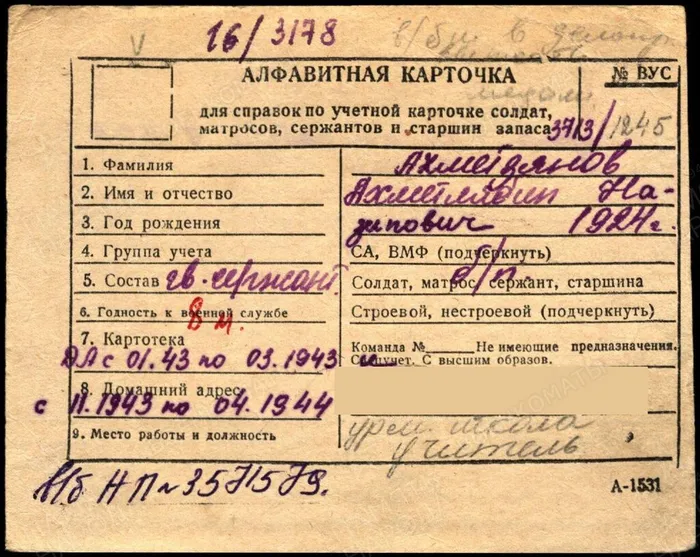 16/3178
в/бил. в
АЛФАВИТНАЯ КАРТОЧКА
№ ВУС
медали
для справок по учетной карточке солдат,
матросов, сержантов и старшин запаса 3713/1245
1. Фамилия Ахметзянов
2. Имя и отчество Ахметляbin На-
3. Год рождения зипович 1924 г.
4. Группа учета СА, ВМФ (подчеркнуть)
б/п.
5. Состав гв. сержант. Солдат, матрос, сержант, старшина
6. Годность к военной службе Строевой, нестроевой (подчеркнуть)
В м.
7. Картотека Команда №       Не имеющие предназначения.
ДА с 01.43 по 03.1943 и Спецучет. С высшим образов.
8. Домашний адрес
с 11.1943 по 04.1944
9. Место работы и должность школа
учитель
В/б НП № 3571579.
А-1531